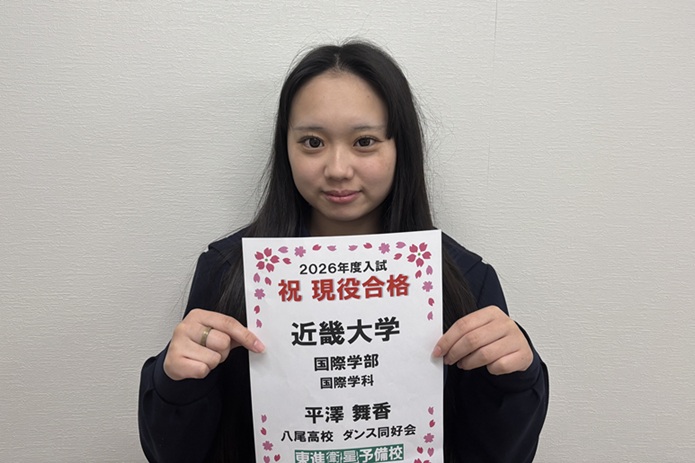 2026年度入試
祝 現役合格
近畿大学
国際学部
国際学科
平澤 舞香
八尾高校 ダンス同好会
東進衛星予備校